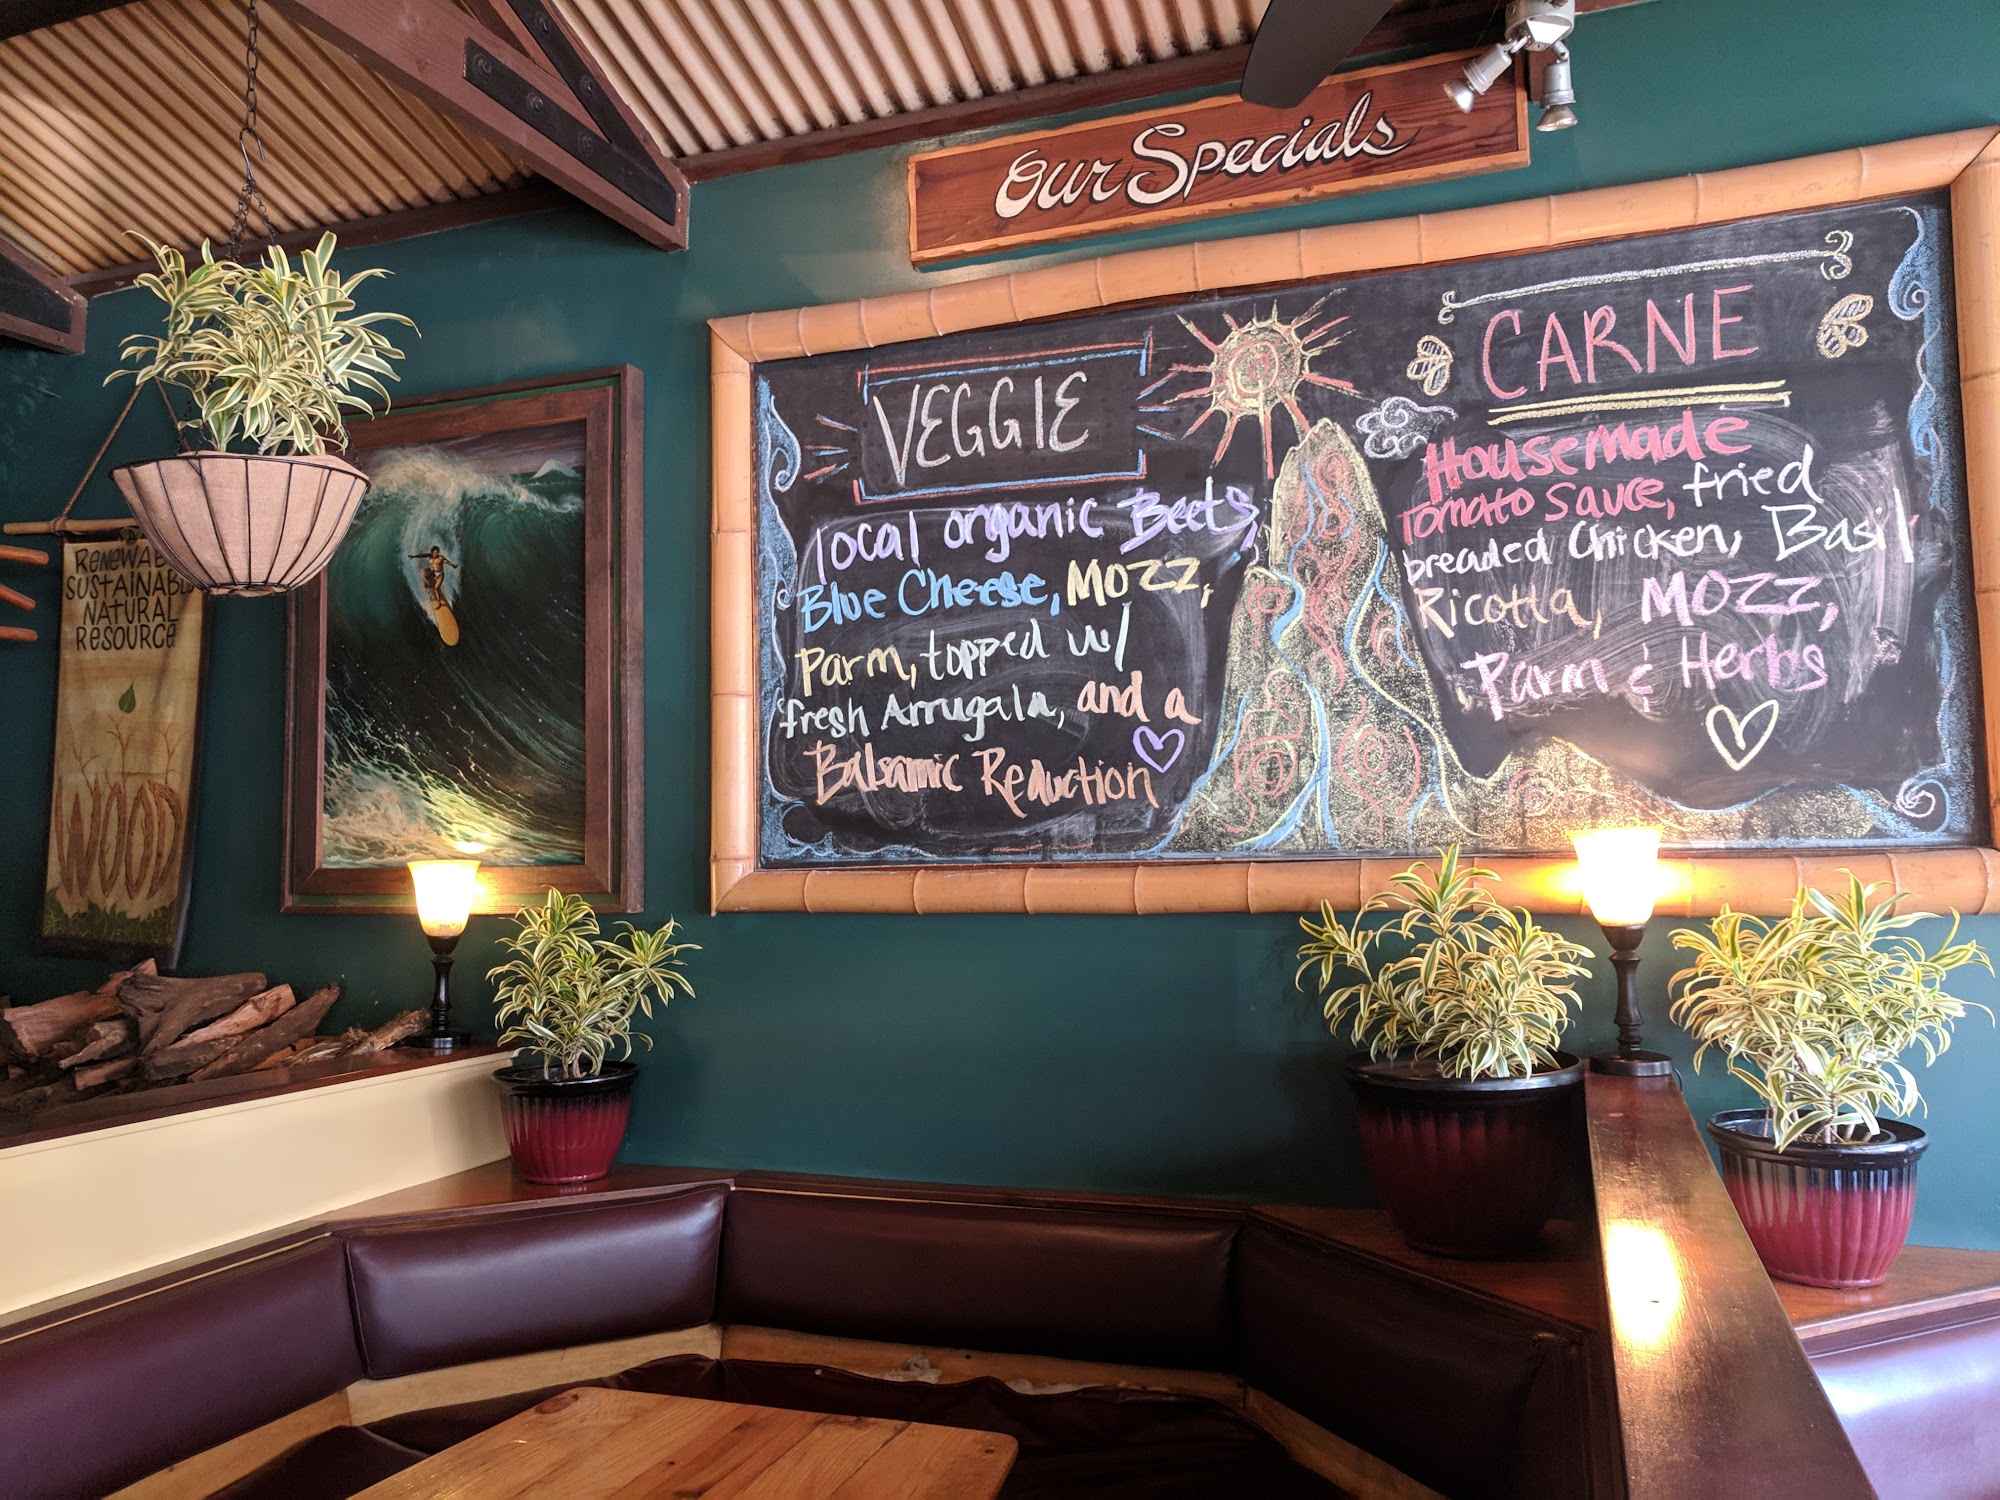 Our Specials
VEGGIE
local organic Beets,
Blue Cheese, Mozz,
Parm, topped w/
fresh Arrugala, and a
Balsamic Reduction
CARNE
Housemade
Tomato Sauce, fried
breaded Chicken, Basil,
Ricotta, Mozz,
Parm & Herbs
SUSTAINABLE
NATURAL
RESOURCE
WOOD